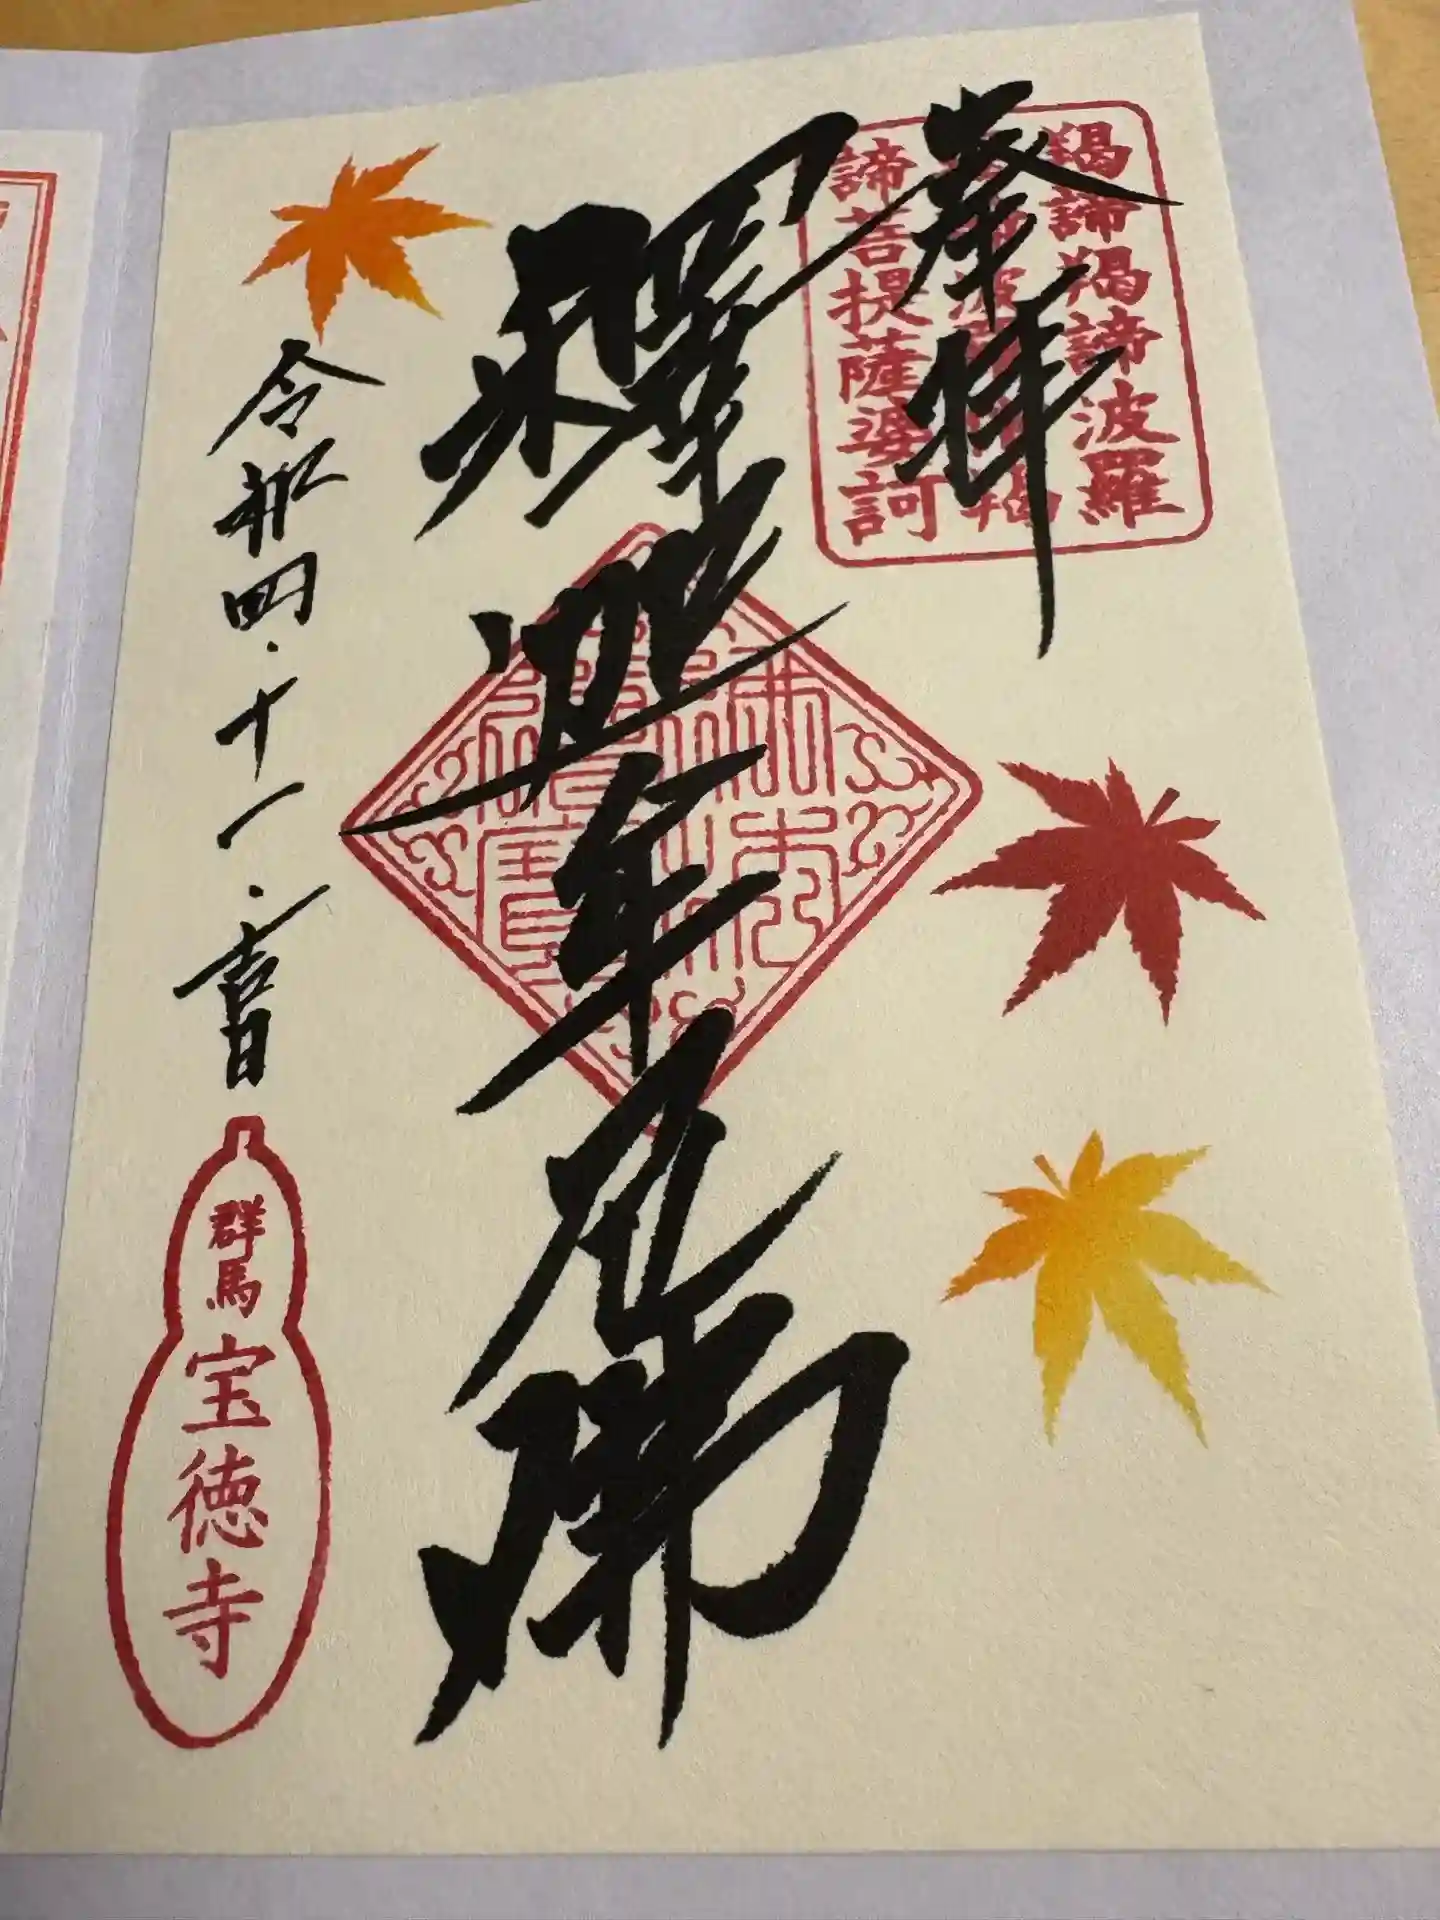 奉拝
羯諦羯諦波羅
諦菩提薩婆訶
釋迦牟尼佛
令和四・十一・吉日
群馬
宝徳寺